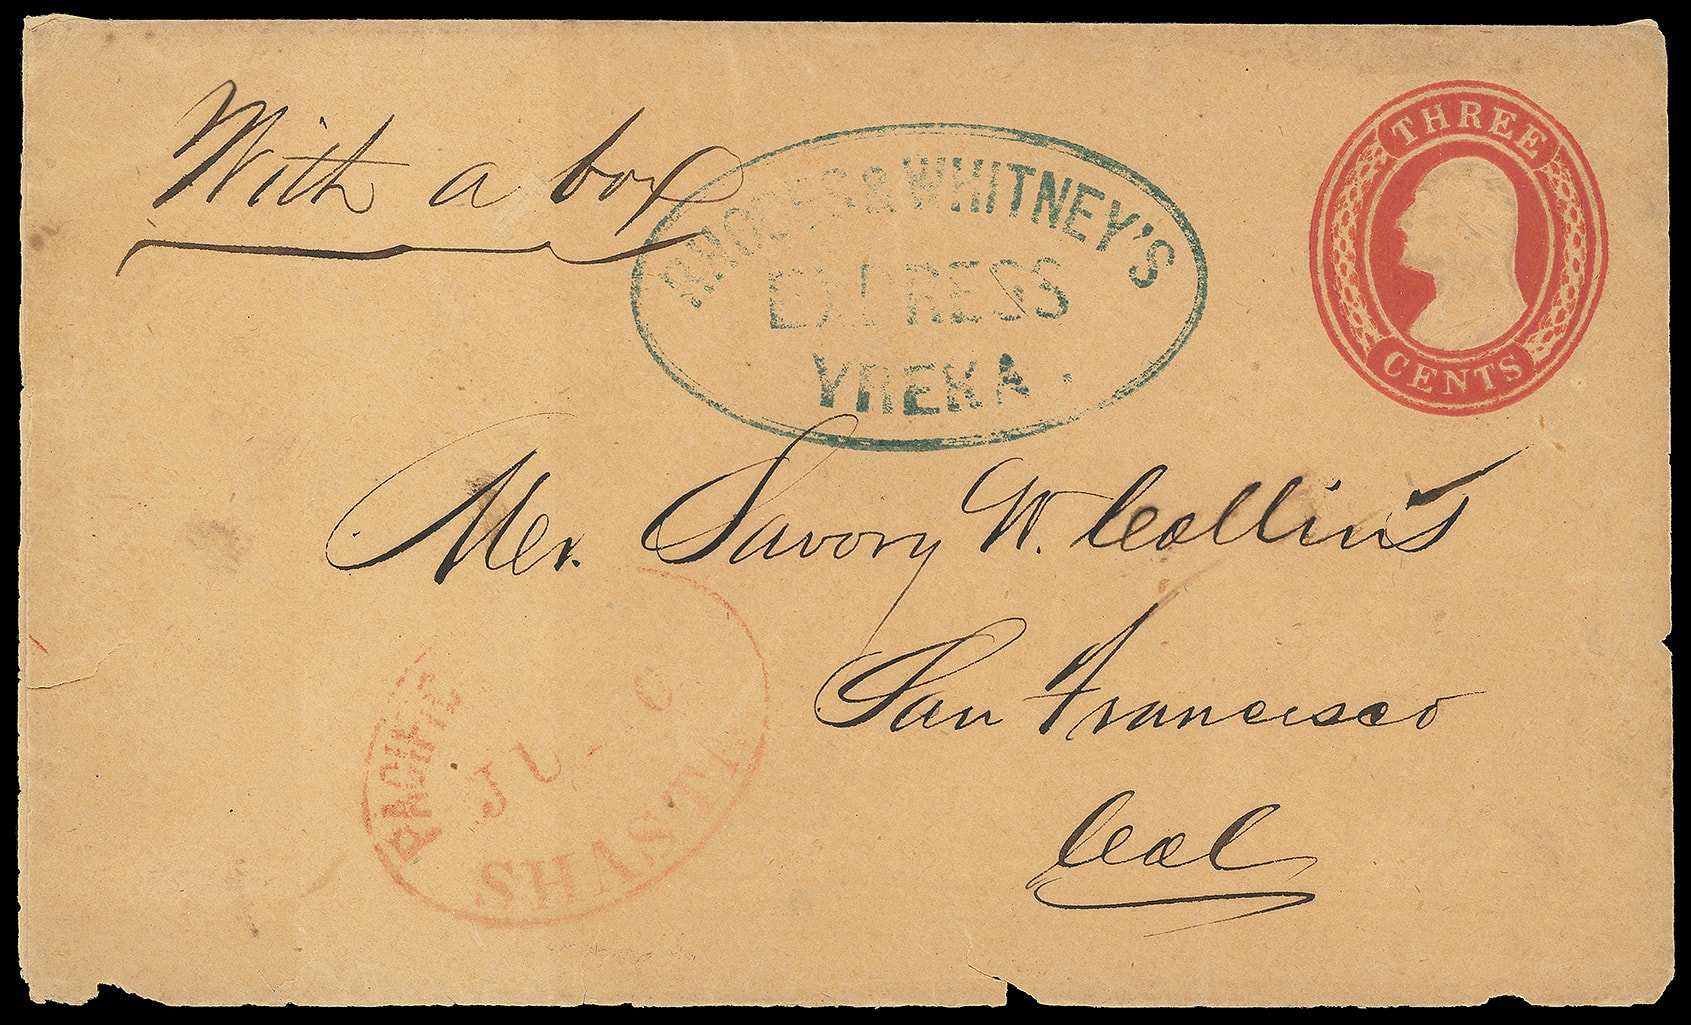 With a box
& WHITNEY'S
EXPRESS
YREKA
THREE
CENTS
Mr. Savory W. Collins
San Francisco
Cal
PACIFIC
JUL 6
SHASTA